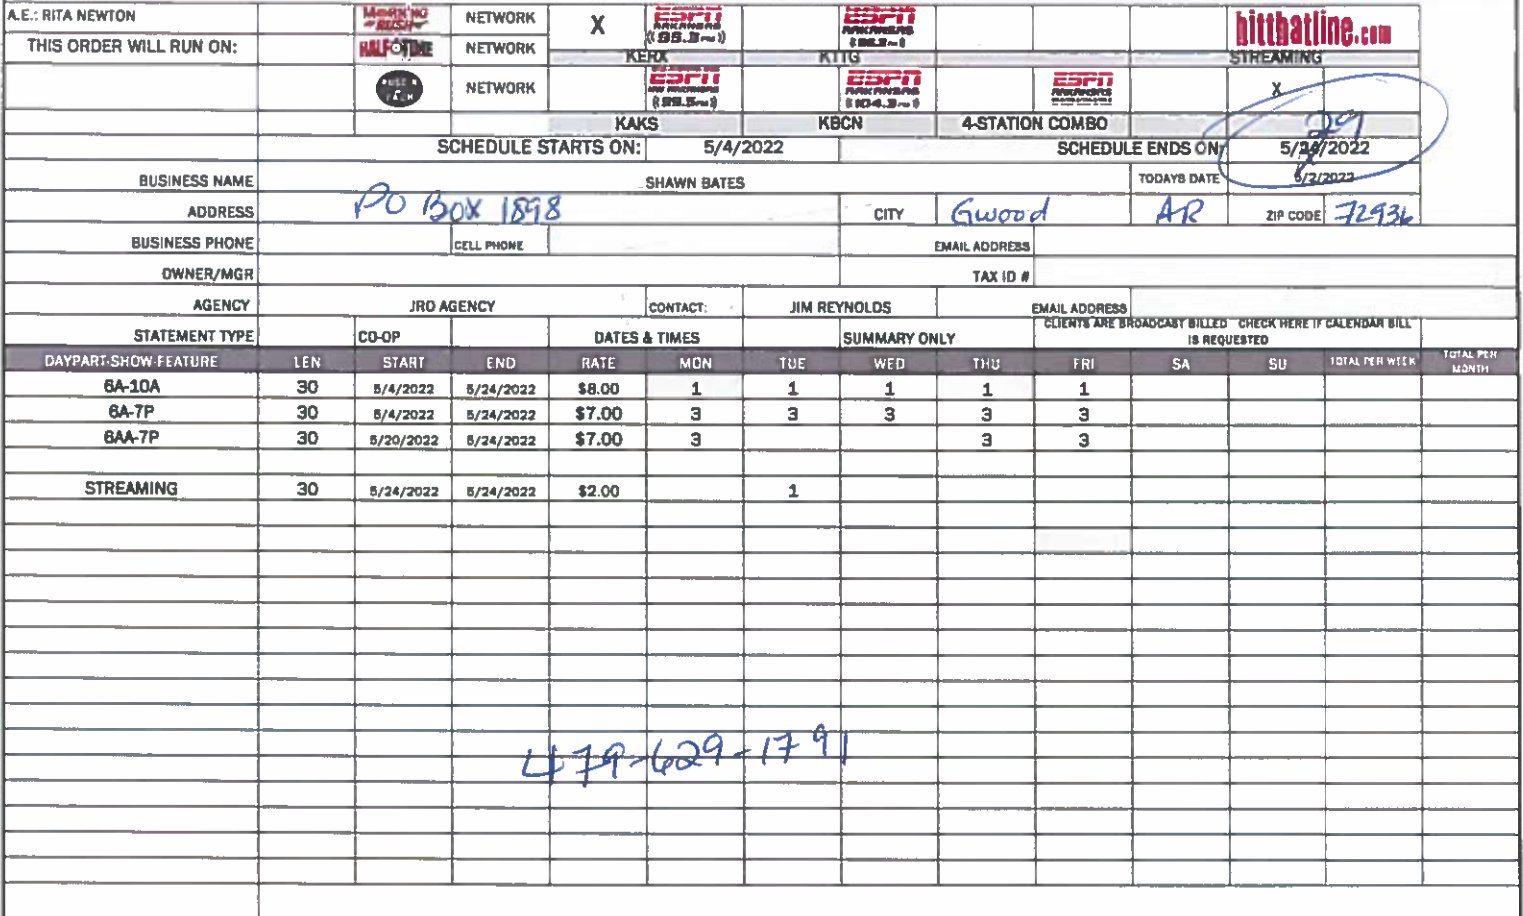 A.E.: RITA NEWTON MORNING RUSH NETWORK X ESPN ARKANSAS ESPN ARKANSAS hitthatline.com
THIS ORDER WILL RUN ON: HALFTIME NETWORK KERX KTTG STREAMING
NETWORK ESPN ESPN ARKANSAS ESPN ARKANSAS X
KAKS KBCN 4-STATION COMBO
SCHEDULE STARTS ON: 5/4/2022 SCHEDULE ENDS ON: 5/24/2022 29
BUSINESS NAME SHAWN BATES TODAYS DATE 5/2/2022
ADDRESS PO BOX 1898 CITY Gwood AR ZIP CODE 72936
BUSINESS PHONE CELL PHONE EMAIL ADDRESS
OWNER/MGR TAX ID #
AGENCY JRO AGENCY CONTACT: JIM REYNOLDS EMAIL ADDRESS
STATEMENT TYPE CO-OP DATES & TIMES SUMMARY ONLY CLIENTS ARE BROADCAST BILLED CHECK HERE IF CALENDAR BILL
IS REQUESTED
DAYPART-SHOW-FEATURE LEN START END RATE MON TUE WED THU FRI SA SU TOTAL PER WEEK TOTAL PER MONTH
6A-10A 30 5/4/2022 5/24/2022 $8.00 1 1 1 1 1
6A-7P 30 5/4/2022 5/24/2022 $7.00 3 3 3 3 3
6AA-7P 30 5/20/2022 5/24/2022 $7.00 3 3 3
STREAMING 30 5/24/2022 5/24/2022 $2.00 1
479-629-1791